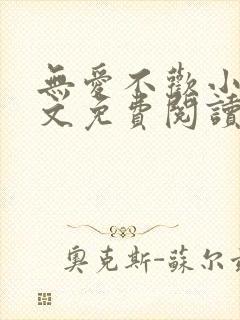 無愛不歡小
文免費閱讀
奧克斯-蘇尔